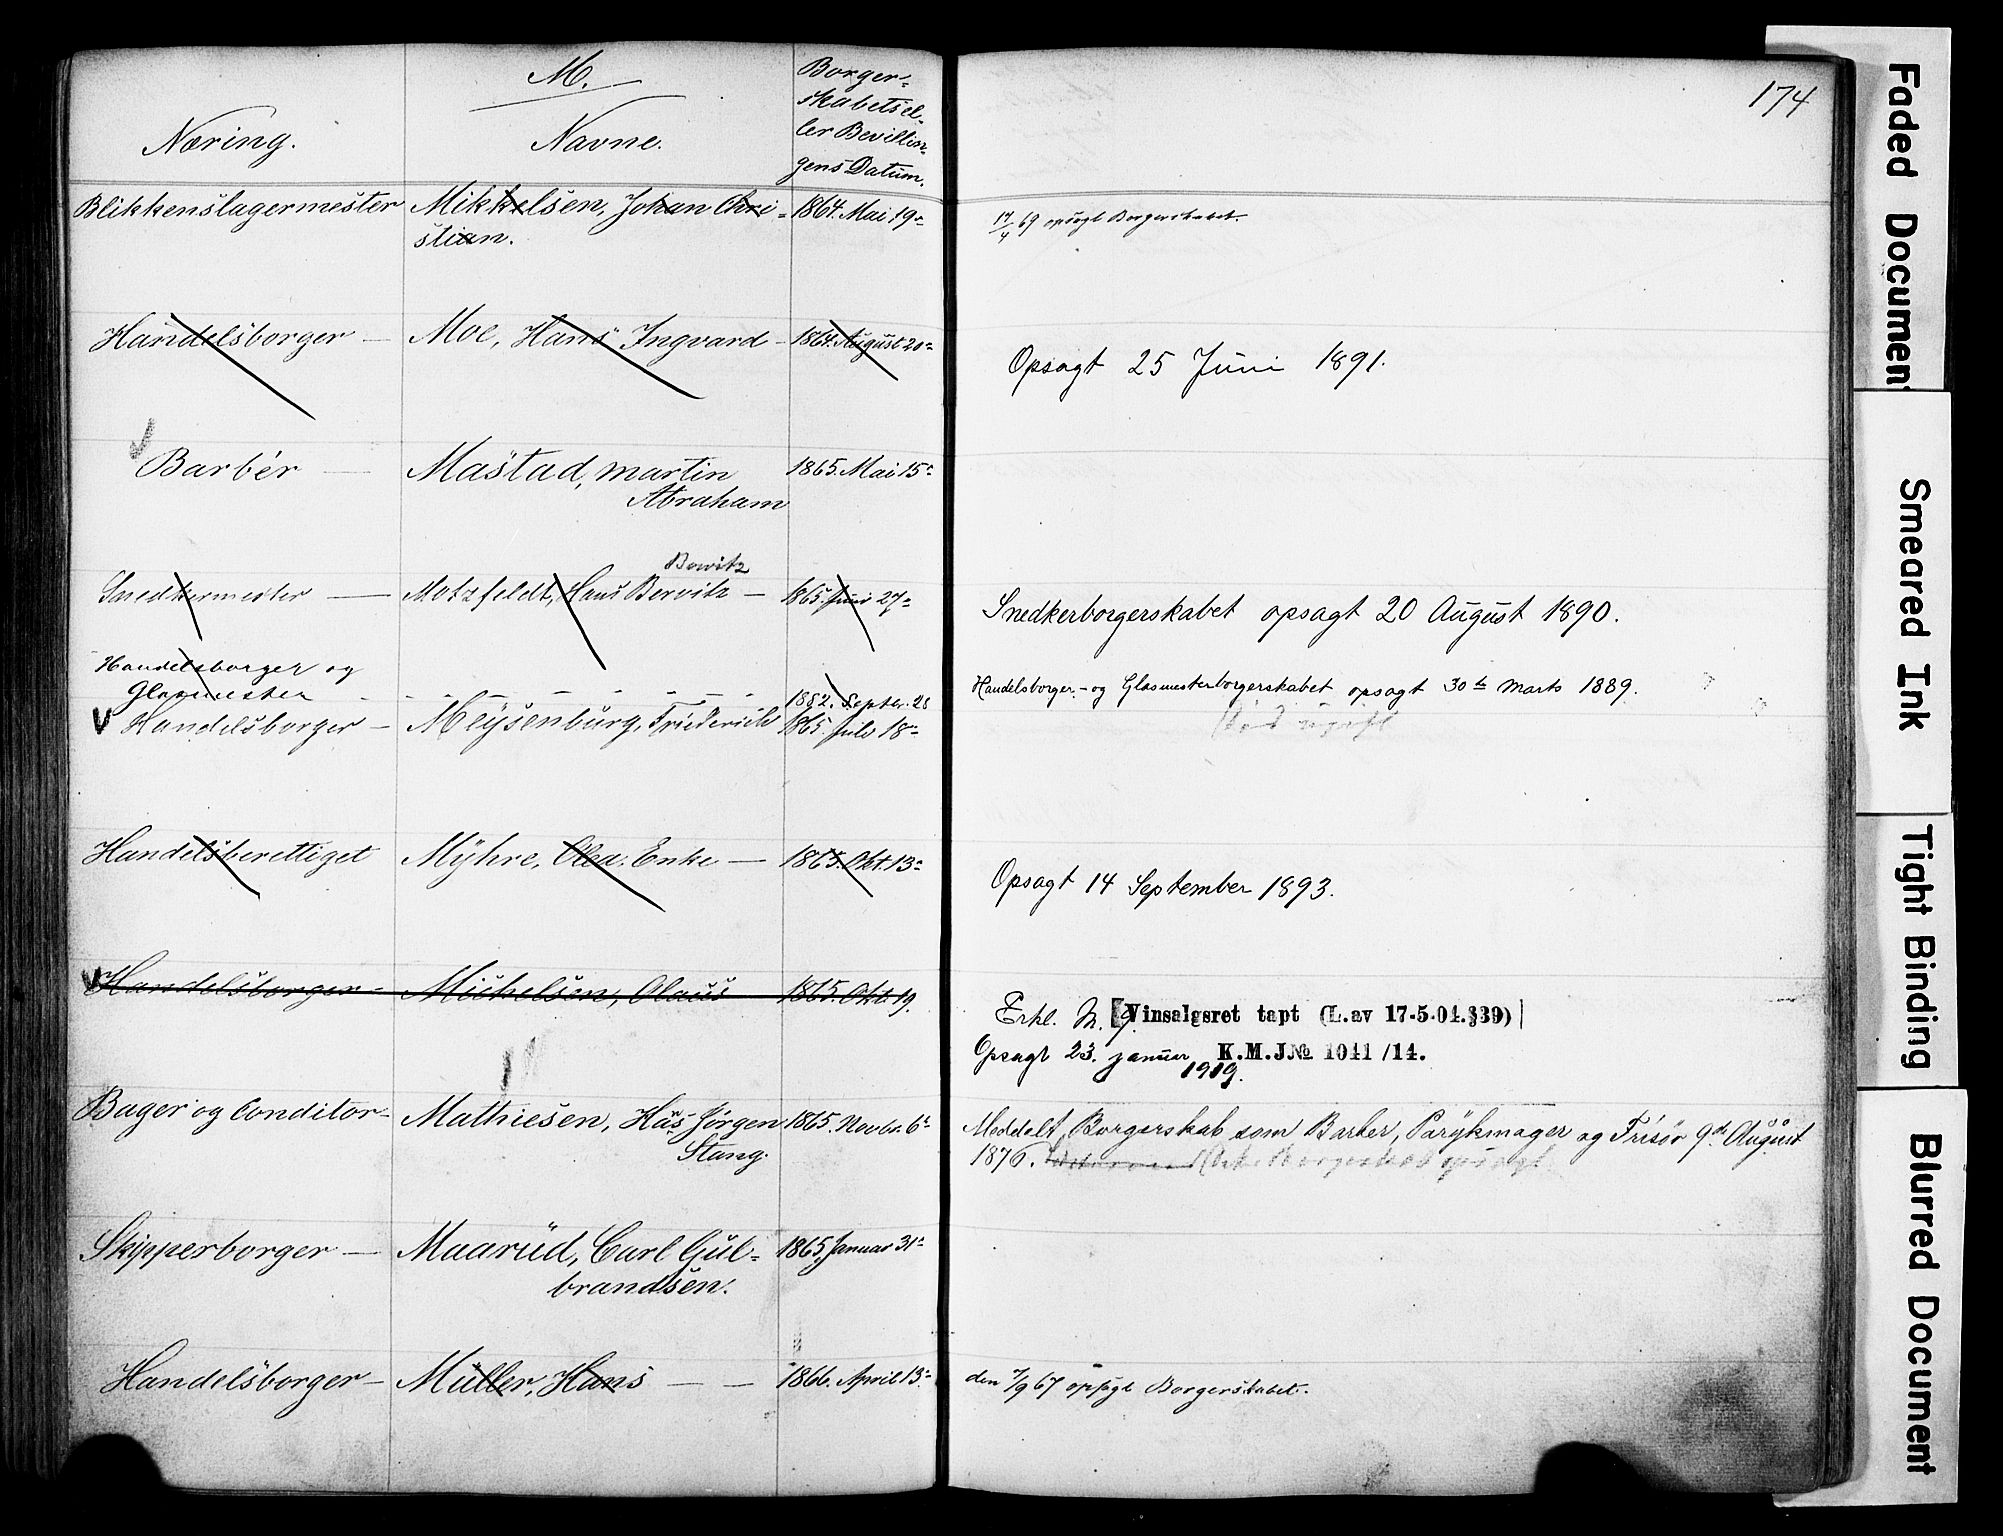 M.
Næring.
Navne.
Borger-
skabets el-
ler Bevillin-
gens Datum.
174
Blikkenslagermester Mikkelsen, Johan Chri- 1864. Mai 19.
stian.
17/4 69 opsagt Borgerskabet.
Handelsborger — Moe, Hans Ingvard - 1864. August 20.
Opsagt 25 Juni 1891.
Barbér — Mastad, Martin 1865. Mai 15.
Abraham
Bowitz
Snedkermester — Motzfeldt, Hans Berwitz — 1865. Juni 27.
Snedkerborgerskabet opsagt 20 August 1890.
Handelsborger og
Glasmester - - - - - 1882. Septer. 28
V Handelsborger - Meÿsenburg, Friederich 1865. Juli 18.
Handelsborger- og Glasmesterborgerskabet opsagt 30te Marts 1889.
Handelsberettiget Mÿhre, Olea. Enke — 1865. Okt. 13.
Opsagt 14 September 1893.
V Handelsborger - Mickelsen, Olaus 1865. Okt. 19.
Erkl. M. 9. Vinsalgsret tapt (L.av 17-5-04.§39)
Opsagt 23. januar K.M.J.№ 1041/14.
1919.
Bager og Conditor - Mathiesen, Hans Jørgen 1865. Novbr. 6.
Stang.
Meddelt Borgerskab som Barber, Parÿkmager og Frisør 9de August
1876. Borgerskab opsagt
Skipperborger — Maarud, Carl Gul- 1865, Januar 31.
brandsen.
Handelsborger - Müller, Hans — — 1866. April 13.
den 7/9 67 opsagt Borgerskabet.
Faded Document
Smeared Ink
Tight Binding
Blurred Document